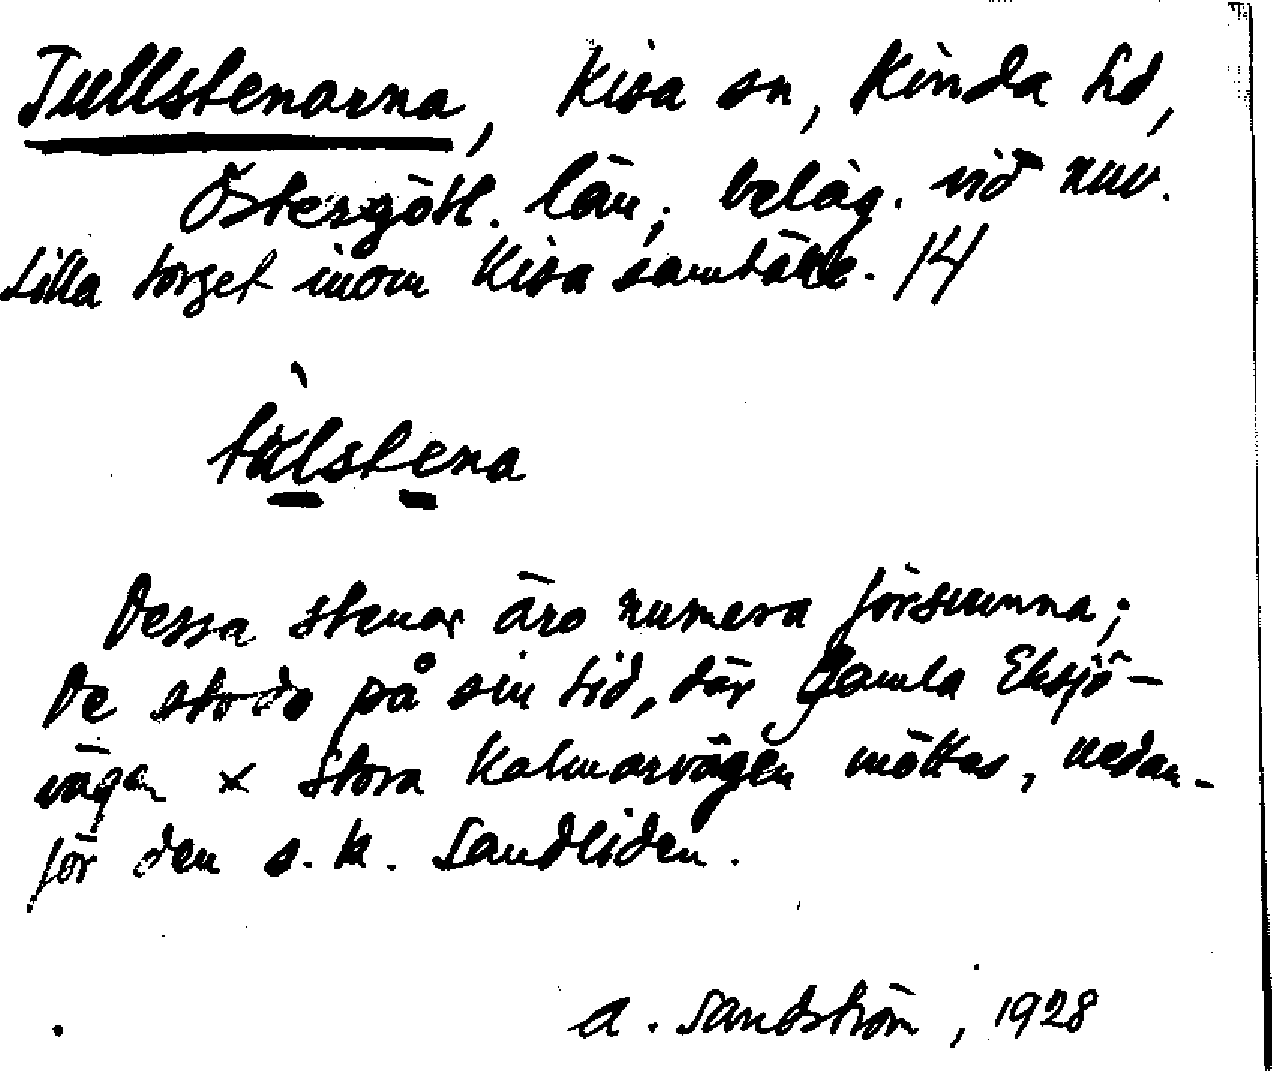 Tullstenarna, Kisa sn, Kinda hd,
Östergötl. län, beläg. vid nuv.
Lilla torget inom Kisa samhälle.
tülstena
Dessa stenar äro numera försvunna;
De stodo på sin tid, där Gamla Eksjö-
vägen x Stora Kalmarvägen möttas, nedan-
för den s.k. Sandliden.
A. Sandström, 1928